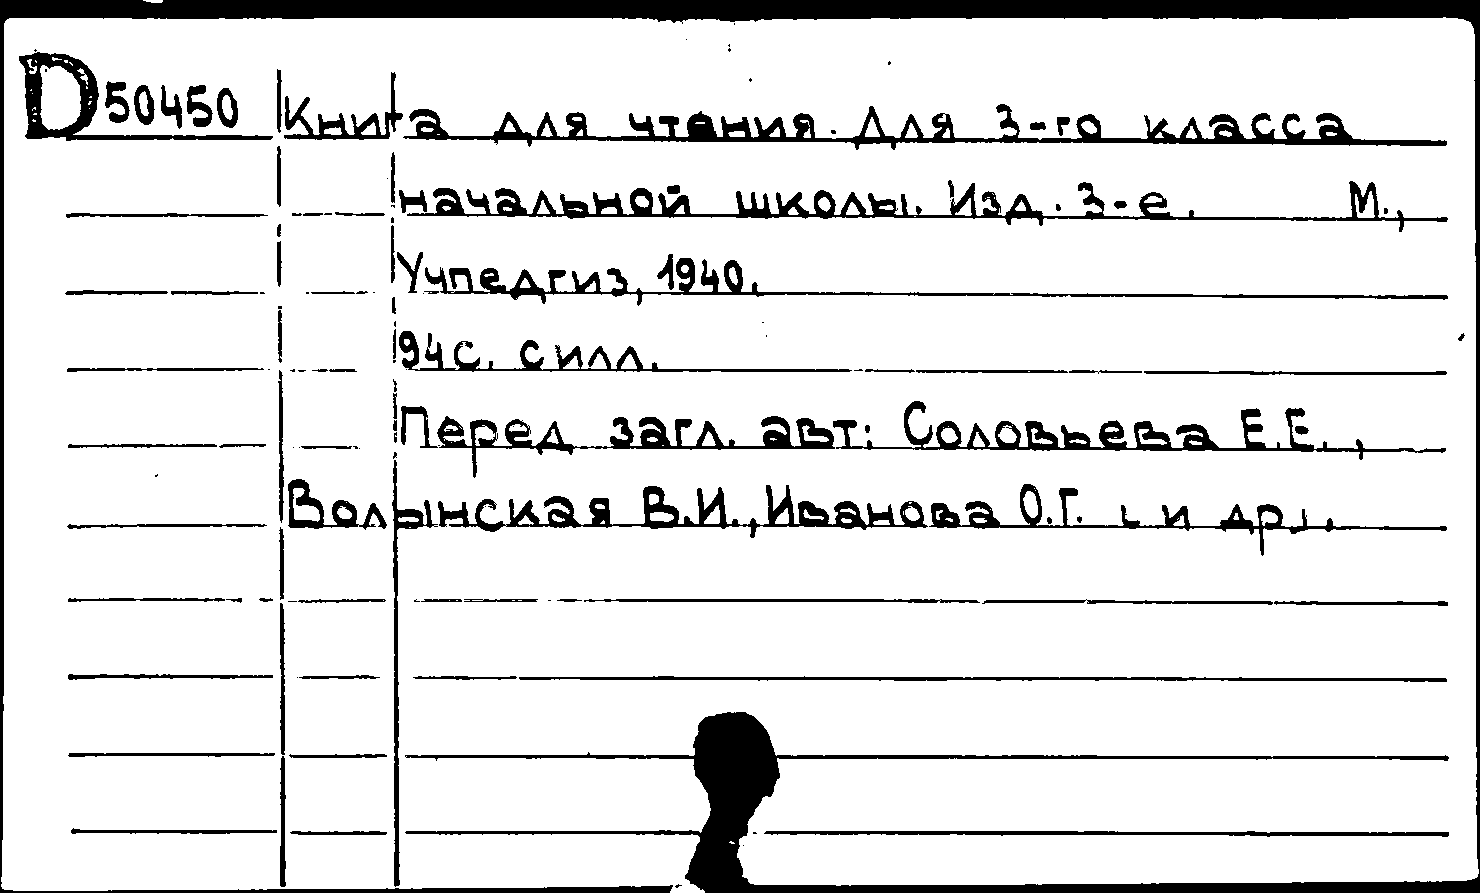 D50450 Книга для чтения. Для 3-го класса
начальной школы. Изд. 3-е. М.,
Учпедгиз, 1940.
94с. с илл.
Перед загл. авт: Соловьева Е.Е.,
Волынская В.И., Иванова О.Г. [и др].